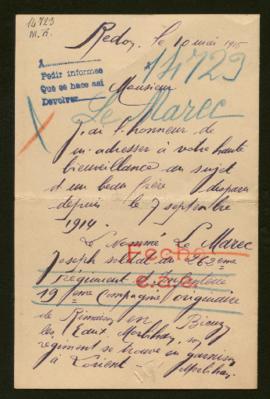 14723
M.R.
Redon, le 10 mai 1915
A
Pedir informes
Que se hace asi
Devolver
14723
Monsieur
Le Marec
J'ai l'honneur de
m'adresser à votre haute
bienveillance au sujet
d'un beau frère disparu
depuis le 7 septembre
1914.
Le Nommé Le Marec
Joseph soldat au 262ème
Régiment d'Infanterie
19ème Compagnie originaire
de en Bieuzy
les Eaux Morbihan, son
régiment se trouve en garnison
à Lorient Morbihan.